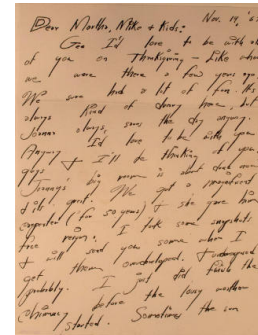 Dear Martha, Mike & Kids: Nov. 19, '6
Gee I'd love to be with all
of you on Thanksgiving - Like when
we were there a few years ago.
We sure had a lot of fun. It's
always kind of dreary here, but
always, saves the day anyway.
Anyway I'd love to be with you
guys & I'll be thinking of you.
big room is about done now
& it's great. We got a
carpenter (for 50 years) & she gave him
free reign. I took some snapshots
& will send you some when I
get them developed,
probably. I just did finish the
chimney before the lousy weather
started. Sometimes the sun